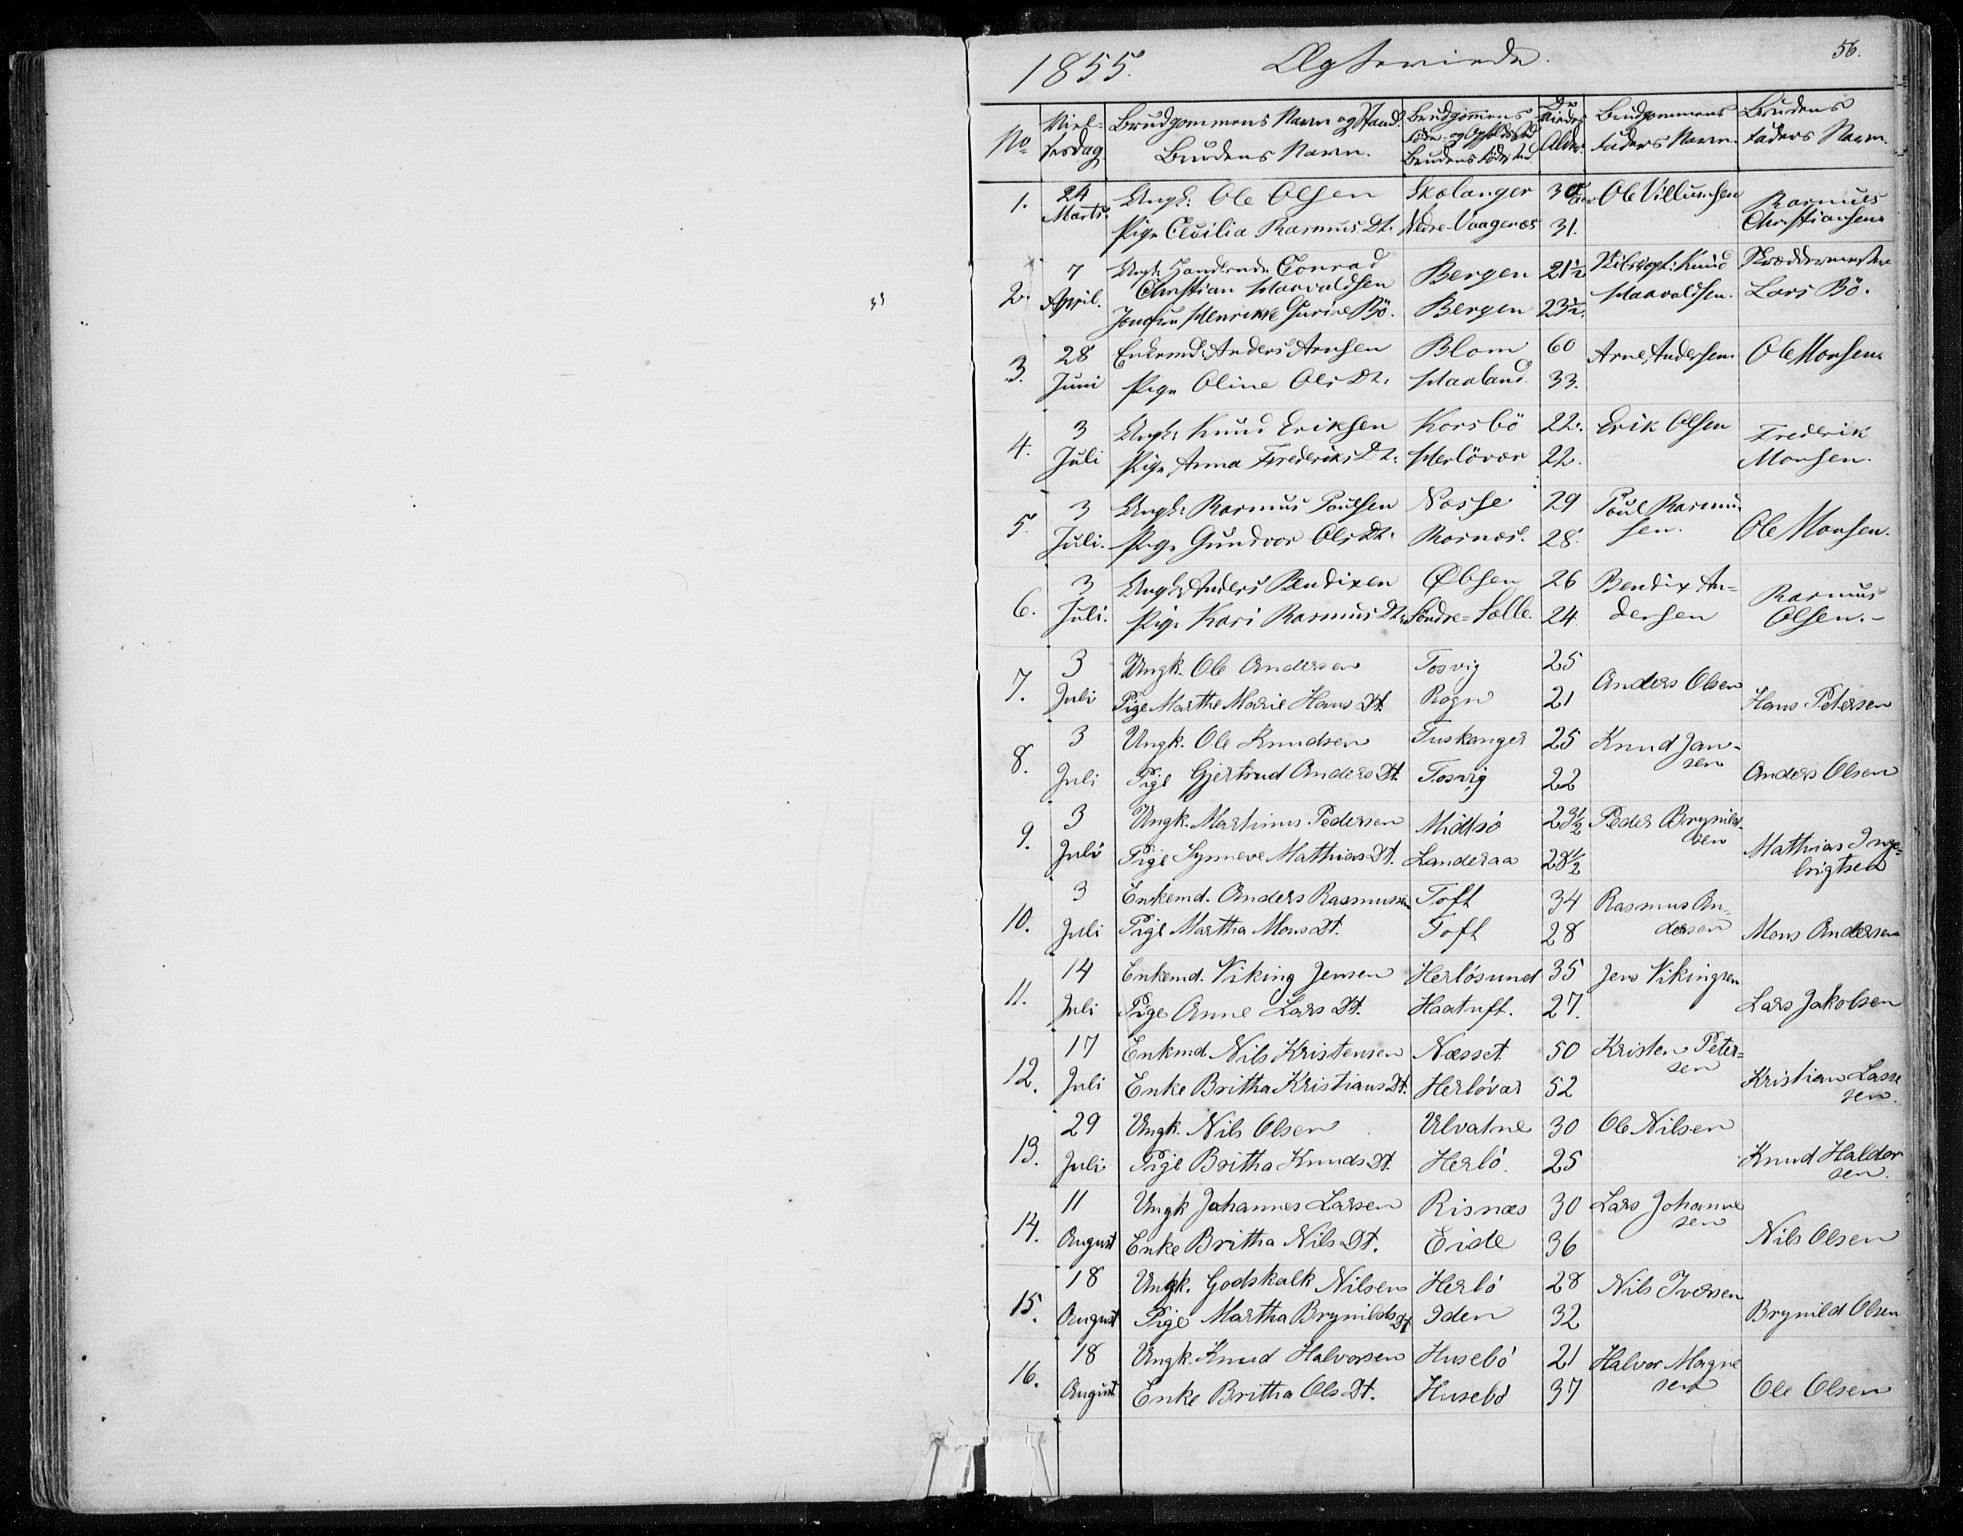 1855. Ægteviede. 56.
No. Viel-sesdag. Brudgommens Navn og Stand. Brudens Navn. Brudgommens Føde- og Opholdssted Brudens Fødested. De Viedes Alder. Brudgommens Faders Navn. Brudens Faders Navn.
1. 24 Ungk. Ole Olsen Skolanger 30 Ole Villumsen Rasmus
Marts. Pige Cecilia Rasmus Dt. Nedre-Vaagenæs 31. Christiansen
2. 7 Ungk. Handlende Conrad Bergen 21½ Knud Skræddermester
April. Christian Haavaldsen Haavaldsen. Lars Bö.
Jomfru Henrikke Gurine Bö. Bergen 23½.
3. 28 Enkemd. Anders Arnsen Blom 60 Arne Andersen Ole Monsen
Juni Pige Oline Ols Dt. Haaland. 33.
4. 3 Ungk. Knud Eriksen Korsbö 22. Erik Olsen Frederik
Juli Pige Anna Frederiks Dt. Herlövær 22. Monsen.
5. 3 Ungk. Rasmus Poulsen 29 Poul Rasmus
Juli. Pige Gundvor Ols Dt. Rosnæs. 28. sen. Ole Monsen.
6. 3 Ungk. Anders Bendixen 26 Bendix An- Rasmus
Juli. Pige Kari Rasmus Dt. Söndre= 24. dersen Olsen.-
7. 3 Ungk. Ole Andersen Tosvig 25 Anders Olsen
Juli Pige Marthe Marie Hans Dt. Rogn 21 Hans Petersen
8. 3 Ungk. Ole Knudsen Tuskanger 25 Knud Jan-
sen
Juli Pige Gjertrud Anders Dt. Tosvig 22 Anders Olsen
9. 3 Ungk. Martinus Pedersen Midtsö 23½ Peder Brynild-
sen
Juli Pige Synneve Mathias Dt. Landeraa 28½ Mathias Inge-
brigtsen
10. 3 Enkemd. Anders Rasmussen Toft 34 Rasmus An-
Juli Pige Martha Mons Dt. Toft 28 dersen Mons Andersen
11. 14 Enkemd. Viking Jensen Herlösund 35 Jens Vikingsen
Juli Pige Anne Lars Dt. Haatuft. 27. Lars Jakobsen
12. 17 Enkmd. Nils Kristensen Næsset 50 Kristen Peter-
sen
Juli Enke Britha Kristians Dt. Herlövar 52 Kristian Lasse
sen.
13. 29 Ungk. Nils Olsen Ulvatne 30 Ole Nilsen
Juli Pige Britha Knuds Dt. Herlö. 25 Knud Haldor
sen.
14. 11 Ungk Johannes Larsen Risnæs 30 Lars Johanne
sen
August Enke Britha Nils Dt. Eide 36 Nils Olsen
15. 18 Ungk. Godskalk Nilsen Herlö 28 Nils Iversen
August Pige Martha Brynilds Dt Iden 32 Brynild Olsen
16. 18 Ungk. Knud Halvorsen Husebö 21 Halvor Magne
sen
August Enke Britha Ols Dt. Husebö 37 Ole Olsen